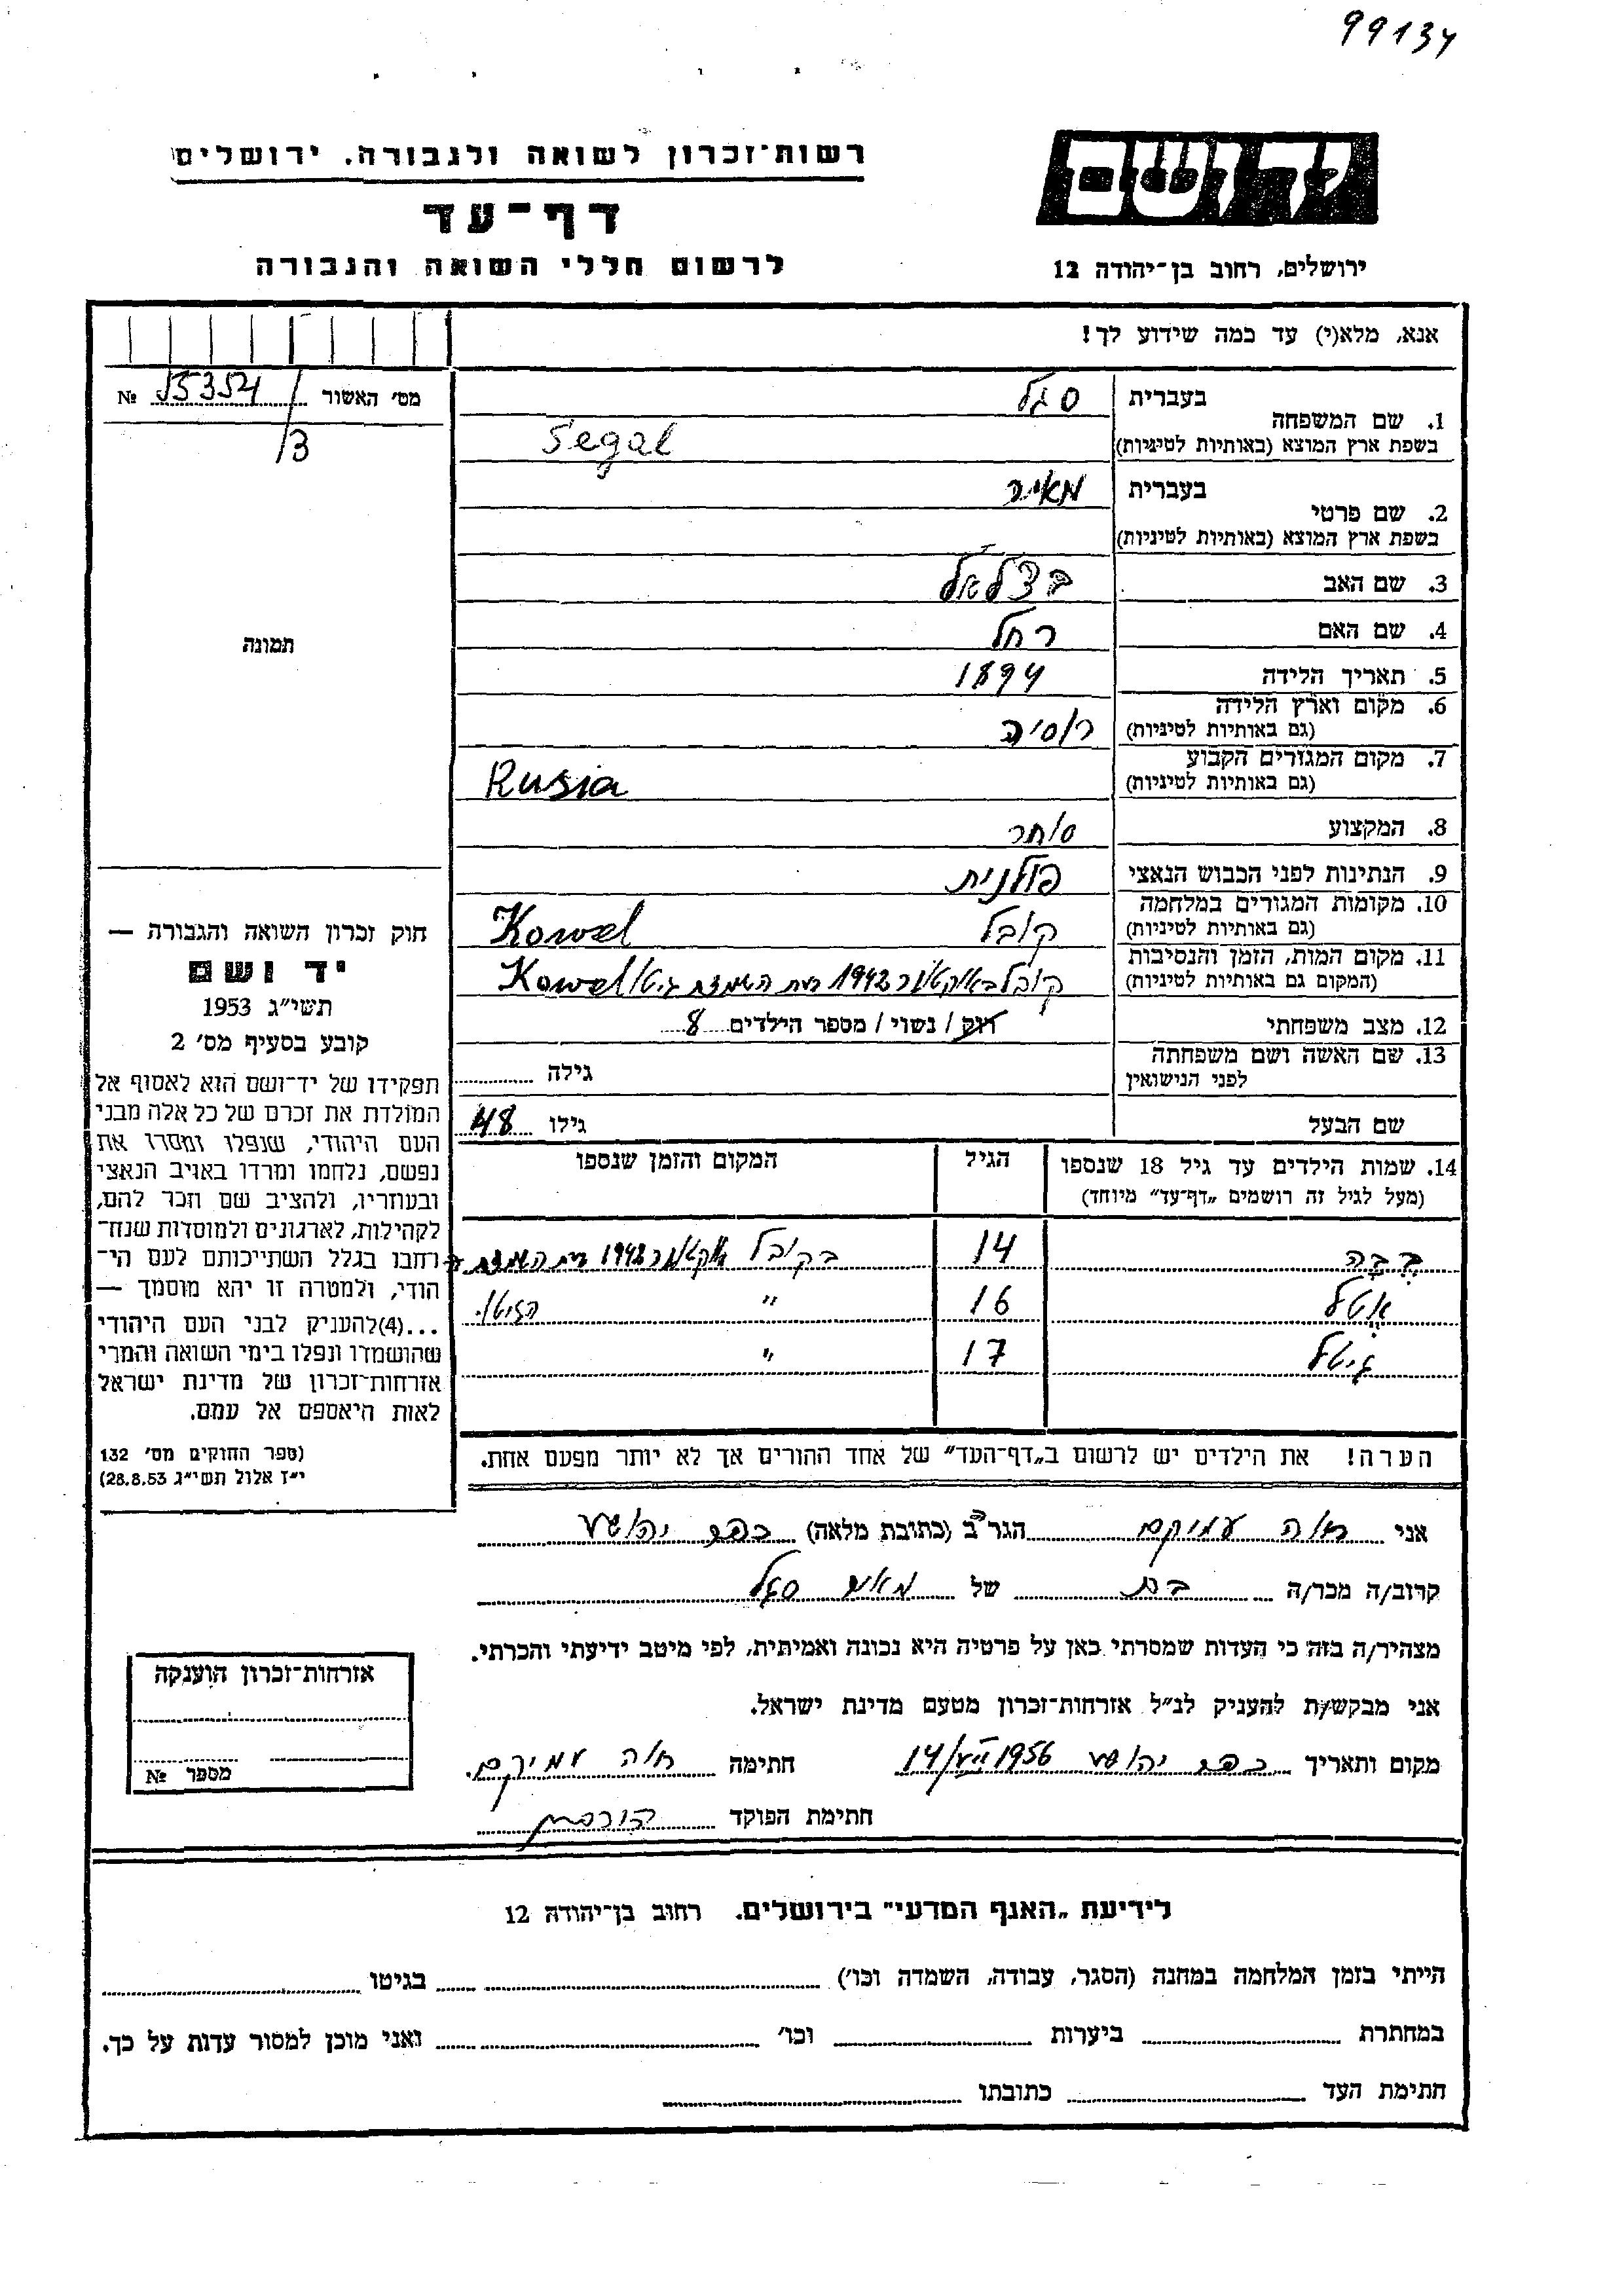 99134
רשות־זכרון לשואה ולגבורה, ירושלים
דף־עד
לרשום חללי השואה והגבורה
יד ושם
ירושלים, רחוב בן־יהודה 12
אנא, מלא(י) עד כמה שידוע לך!
מס׳ האשור 15354 №
/3
תמונה
1. שם המשפחה
בעברית סגל
בשפת ארץ המוצא (באותיות לטיניות) Segal
2. שם פרטי
בעברית מאיר
בשפת ארץ המוצא (באותיות לטיניות)
3. שם האב בצלאל
4. שם האם רחל
5. תאריך הלידה 1894
6. מקום וארץ הלידה
(גם באותיות לטיניות) רוסיה
7. מקום המגורים הקבוע
(גם באותיות לטיניות) Rusia
8. המקצוע סוחר
9. הנתינות לפני הכבוש הנאצי פולנית
10. מקומות המגורים במלחמה
(גם באותיות לטיניות) קובל Kowel
11. מקום המות, הזמן והנסיבות
(המקום גם באותיות לטיניות) קובל באוקטובר 1942 בעת השמדת גיטו Kowel
12. מצב משפחתי רוק / נשוי / מספר הילדים 8
13. שם האשה ושם משפחתה
לפני הנישואין גילה
שם הבעל גילו 48
14. שמות הילדים עד גיל 18 שנספו הגיל המקום והזמן שנספו
(מעל לגיל זה רושמים „דף־עד” מיוחד)
בבה 14 בקובל אוקטובר 1942 בעת השמדת
אטל 16 " הגיטו.
גיטל 17 "
הערה! את הילדים יש לרשום ב„דף־העד” של אחד ההורים אך לא יותר מפעם אחת.
חוק זכרון השואה והגבורה —
יד ושם
תשי״ג 1953
קובע בסעיף מס׳ 2
תפקידו של יד־ושם הוא לאסוף אל
המולדת את זכרם של כל אלה מבני
העם היהודי, שנפלו ומסרו את
נפשם, נלחמו ומרדו באויב הנאצי
ובעוזריו, ולהציב שם וזכר להם,
לקהילות, לארגונים ולמוסדות שנח־
רחבו בגלל השתייכותם לעם הי־
הודי, ולמטרה זו יהא מוסמך —
...(4)להעניק לבני העם היהודי
שהושמדו ונפלו בימי השואה והמרי
אזרחות־זכרון של מדינת ישראל
לאות היאספם אל עמם.
(ספר החוקים מס׳ 132
י״ז אלול תשי״ג 28.8.53)
אני חוה עמיקם הגר ב (כתובת מלאה) כפר יהושע
קרוב/ה מכר/ה בת של מאיר סגל
מצהיר/ה בזה כי העדות שמסרתי כאן על פרטיה היא נכונה ואמיתית, לפי מיטב ידיעתי והכרתי.
אני מבקש/ת להעניק לנ״ל אזרחות־זכרון מטעם מדינת ישראל.
מקום ותאריך כפר יהושע 1956 חתימה חוה עמיקם.
חתימת הפוקד
אזרחות־זכרון הוענקה
מספר №
לידיעת „האגף המדעי” בירושלים. רחוב בן־יהודה 12
הייתי בזמן המלחמה במחנה (הסגר, עבודה, השמדה וכו׳) בגיטו
במחתרת ביערות וכו׳ ואני מוכן למסור עדות על כך.
חתימת העד כתובתו